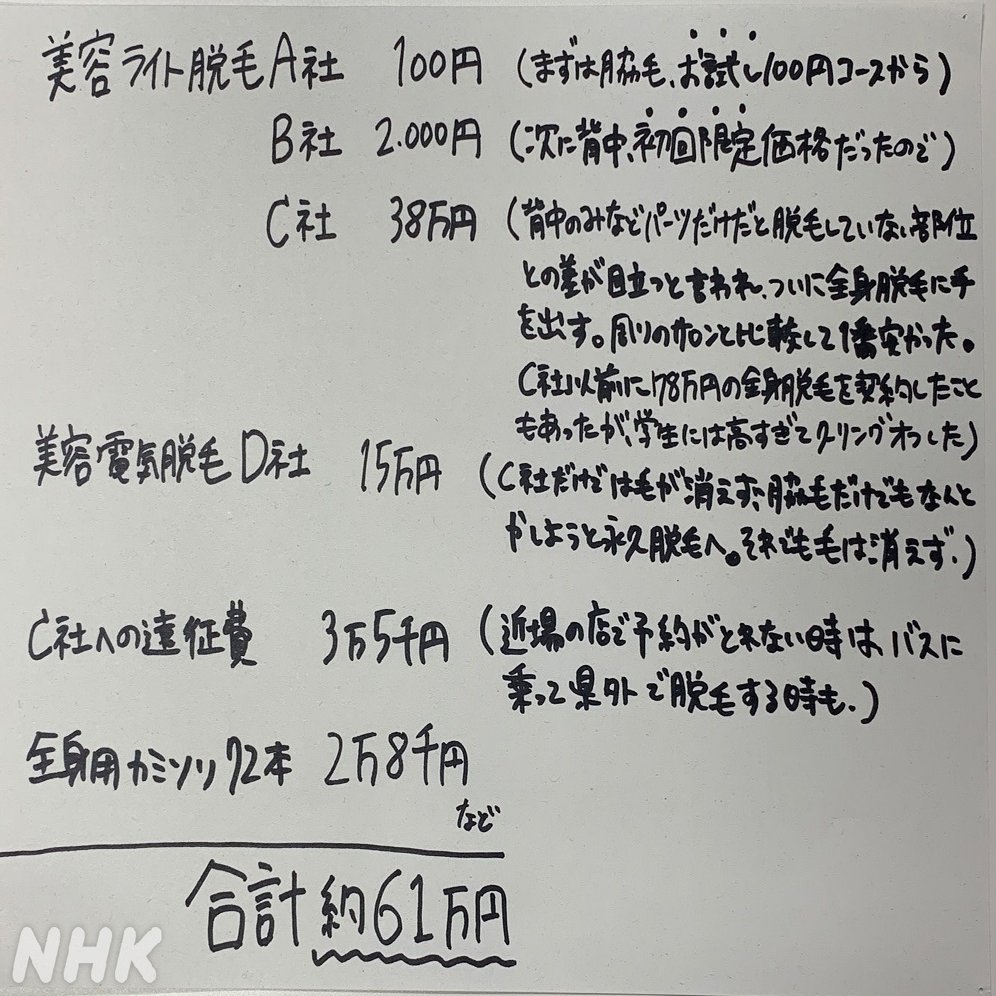 美容ライト脱毛A社 100円 (まずは脇毛、お試し100円コースから)
B社 2.000円 (次に背中、初回限定価格だったので)
C社 38万円 (背中のみなどパーツだけだと脱毛していない部位
との差が目立つと言われ、ついに全身脱毛に手
を出す。周りのサロンと比較して1番安かった。
C社以前に78万円の全身脱毛を契約したこと
もあったが、学生には高すぎてクーリングオフした)
美容電気脱毛D社 15万円 (C社だけでは毛が消えず、脇毛だけでもなんと
かしようと永久脱毛へ。それでも毛は消えず、)
C社への遠征費 3万5千円 (近場の店で予約がとれない時は、バスに
乗って県外で脱毛する時も、)
全身用カミソリ72本 2万8千円
など
合計約61万円
NHK